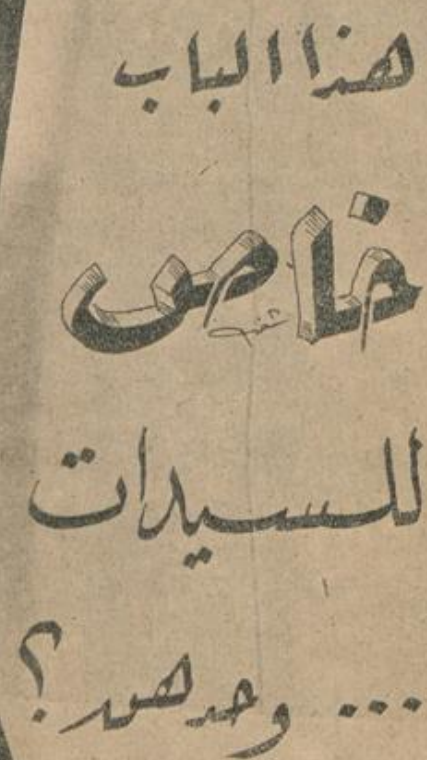 هذا الباب
خاص
للسيدات
... وحدهن؟